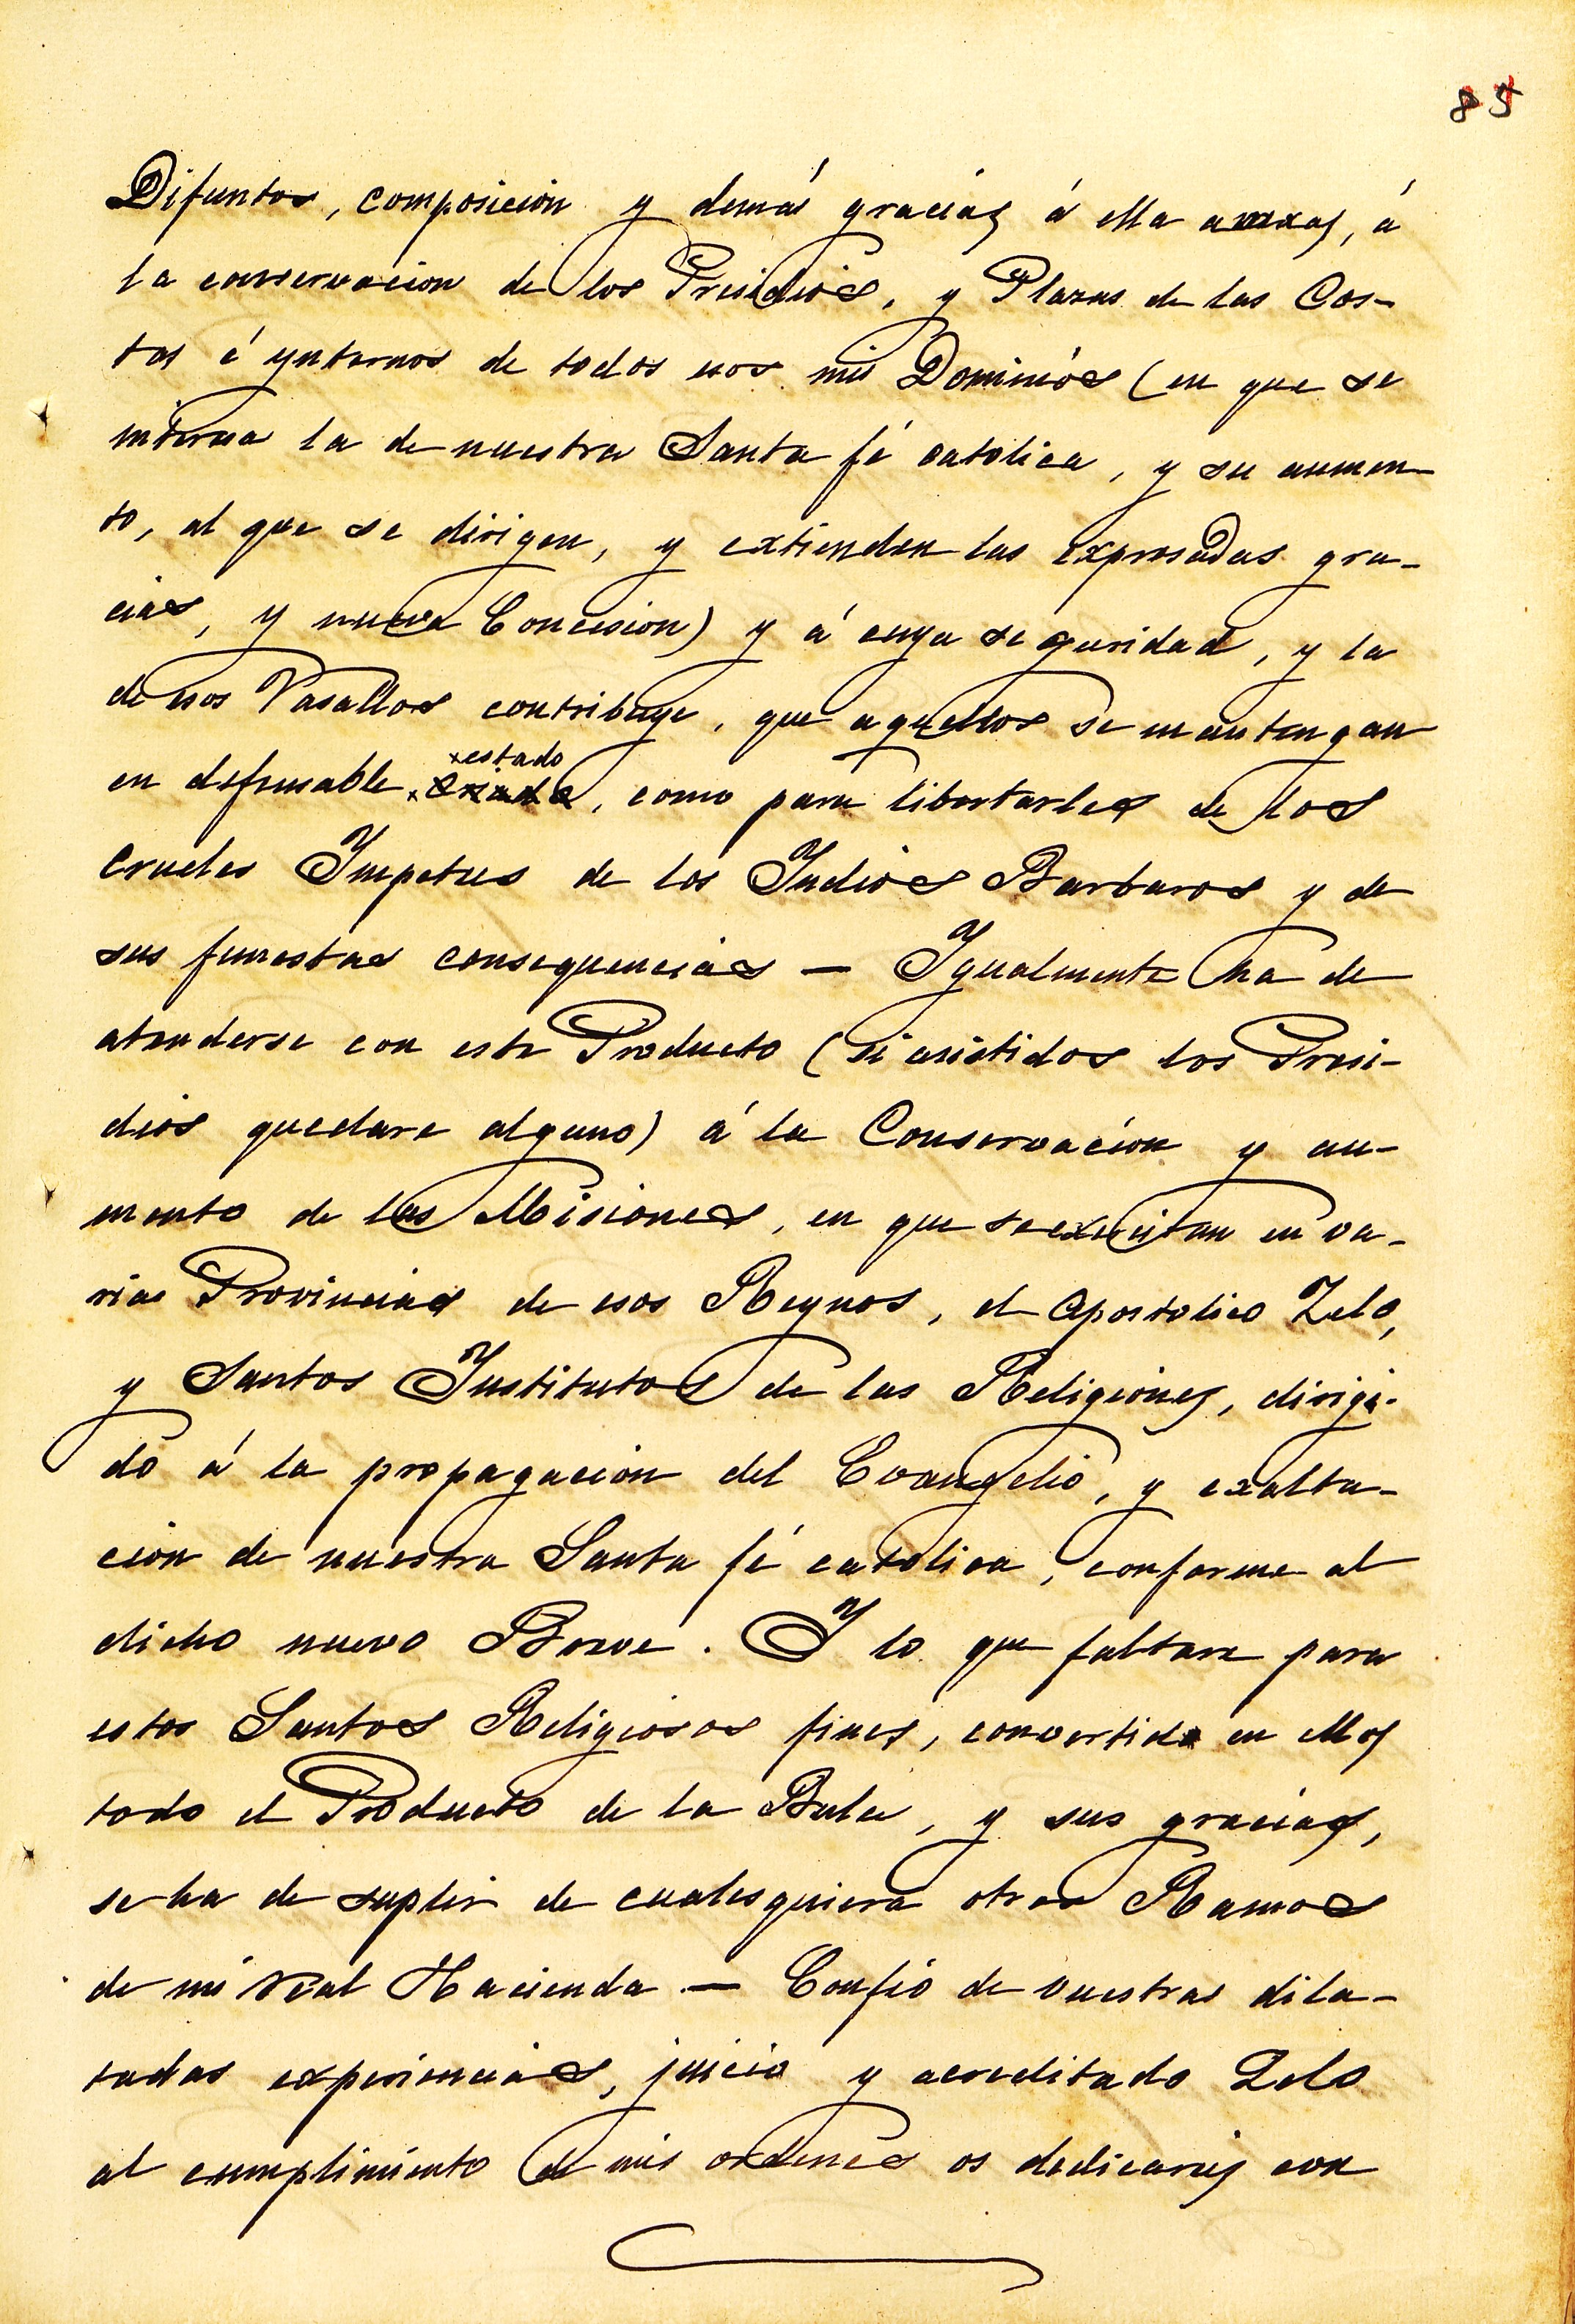 85
Difuntos, composicion y demás gracias á ella anexas, á
la conservacion de los Presidios, y Plazas de las Cos-
tas é ynternos de todos esos mis Dominios (en que se
interesa la de nuestra Santa fé catolica, y su aumen-
to, al que se dirigen, y extienden las expresadas gra-
cias, y nueva Concesion) y á cuya seguridad, y la
de esos Vasallos contribuye, que aquellos se mantengan
en defensable estado, como para libertarles de los
crueles Impetus de los Indios Barbaros y de
sus funestas consequencias — Igualmente ha de
atenderse con este Producto (si asistidos los Presi-
dios quedare alguno) á la Conservacion y au-
mento de las Misiones, en que se exercitan en va-
rias Provincias de esos Reynos, el Apostolico Zelo,
y Santos Institutos de las Religiones, dirigi-
do á la propagacion del Evangelio, y exalta-
cion de nuestra Santa fé catolica, conforme al
dicho nuevo Breve. Y lo que faltare para
estos Santos Religiosos fines, convertido en ellos
todo el Producto de la Bula, y sus gracias,
se ha de suplir de cualesquiera otros Ramos
de mi Real Hacienda. — Confio de vuestras dila-
tadas experiencias, juicio y acreditado Zelo
al cumplimiento de mis ordenes os dedicareis con